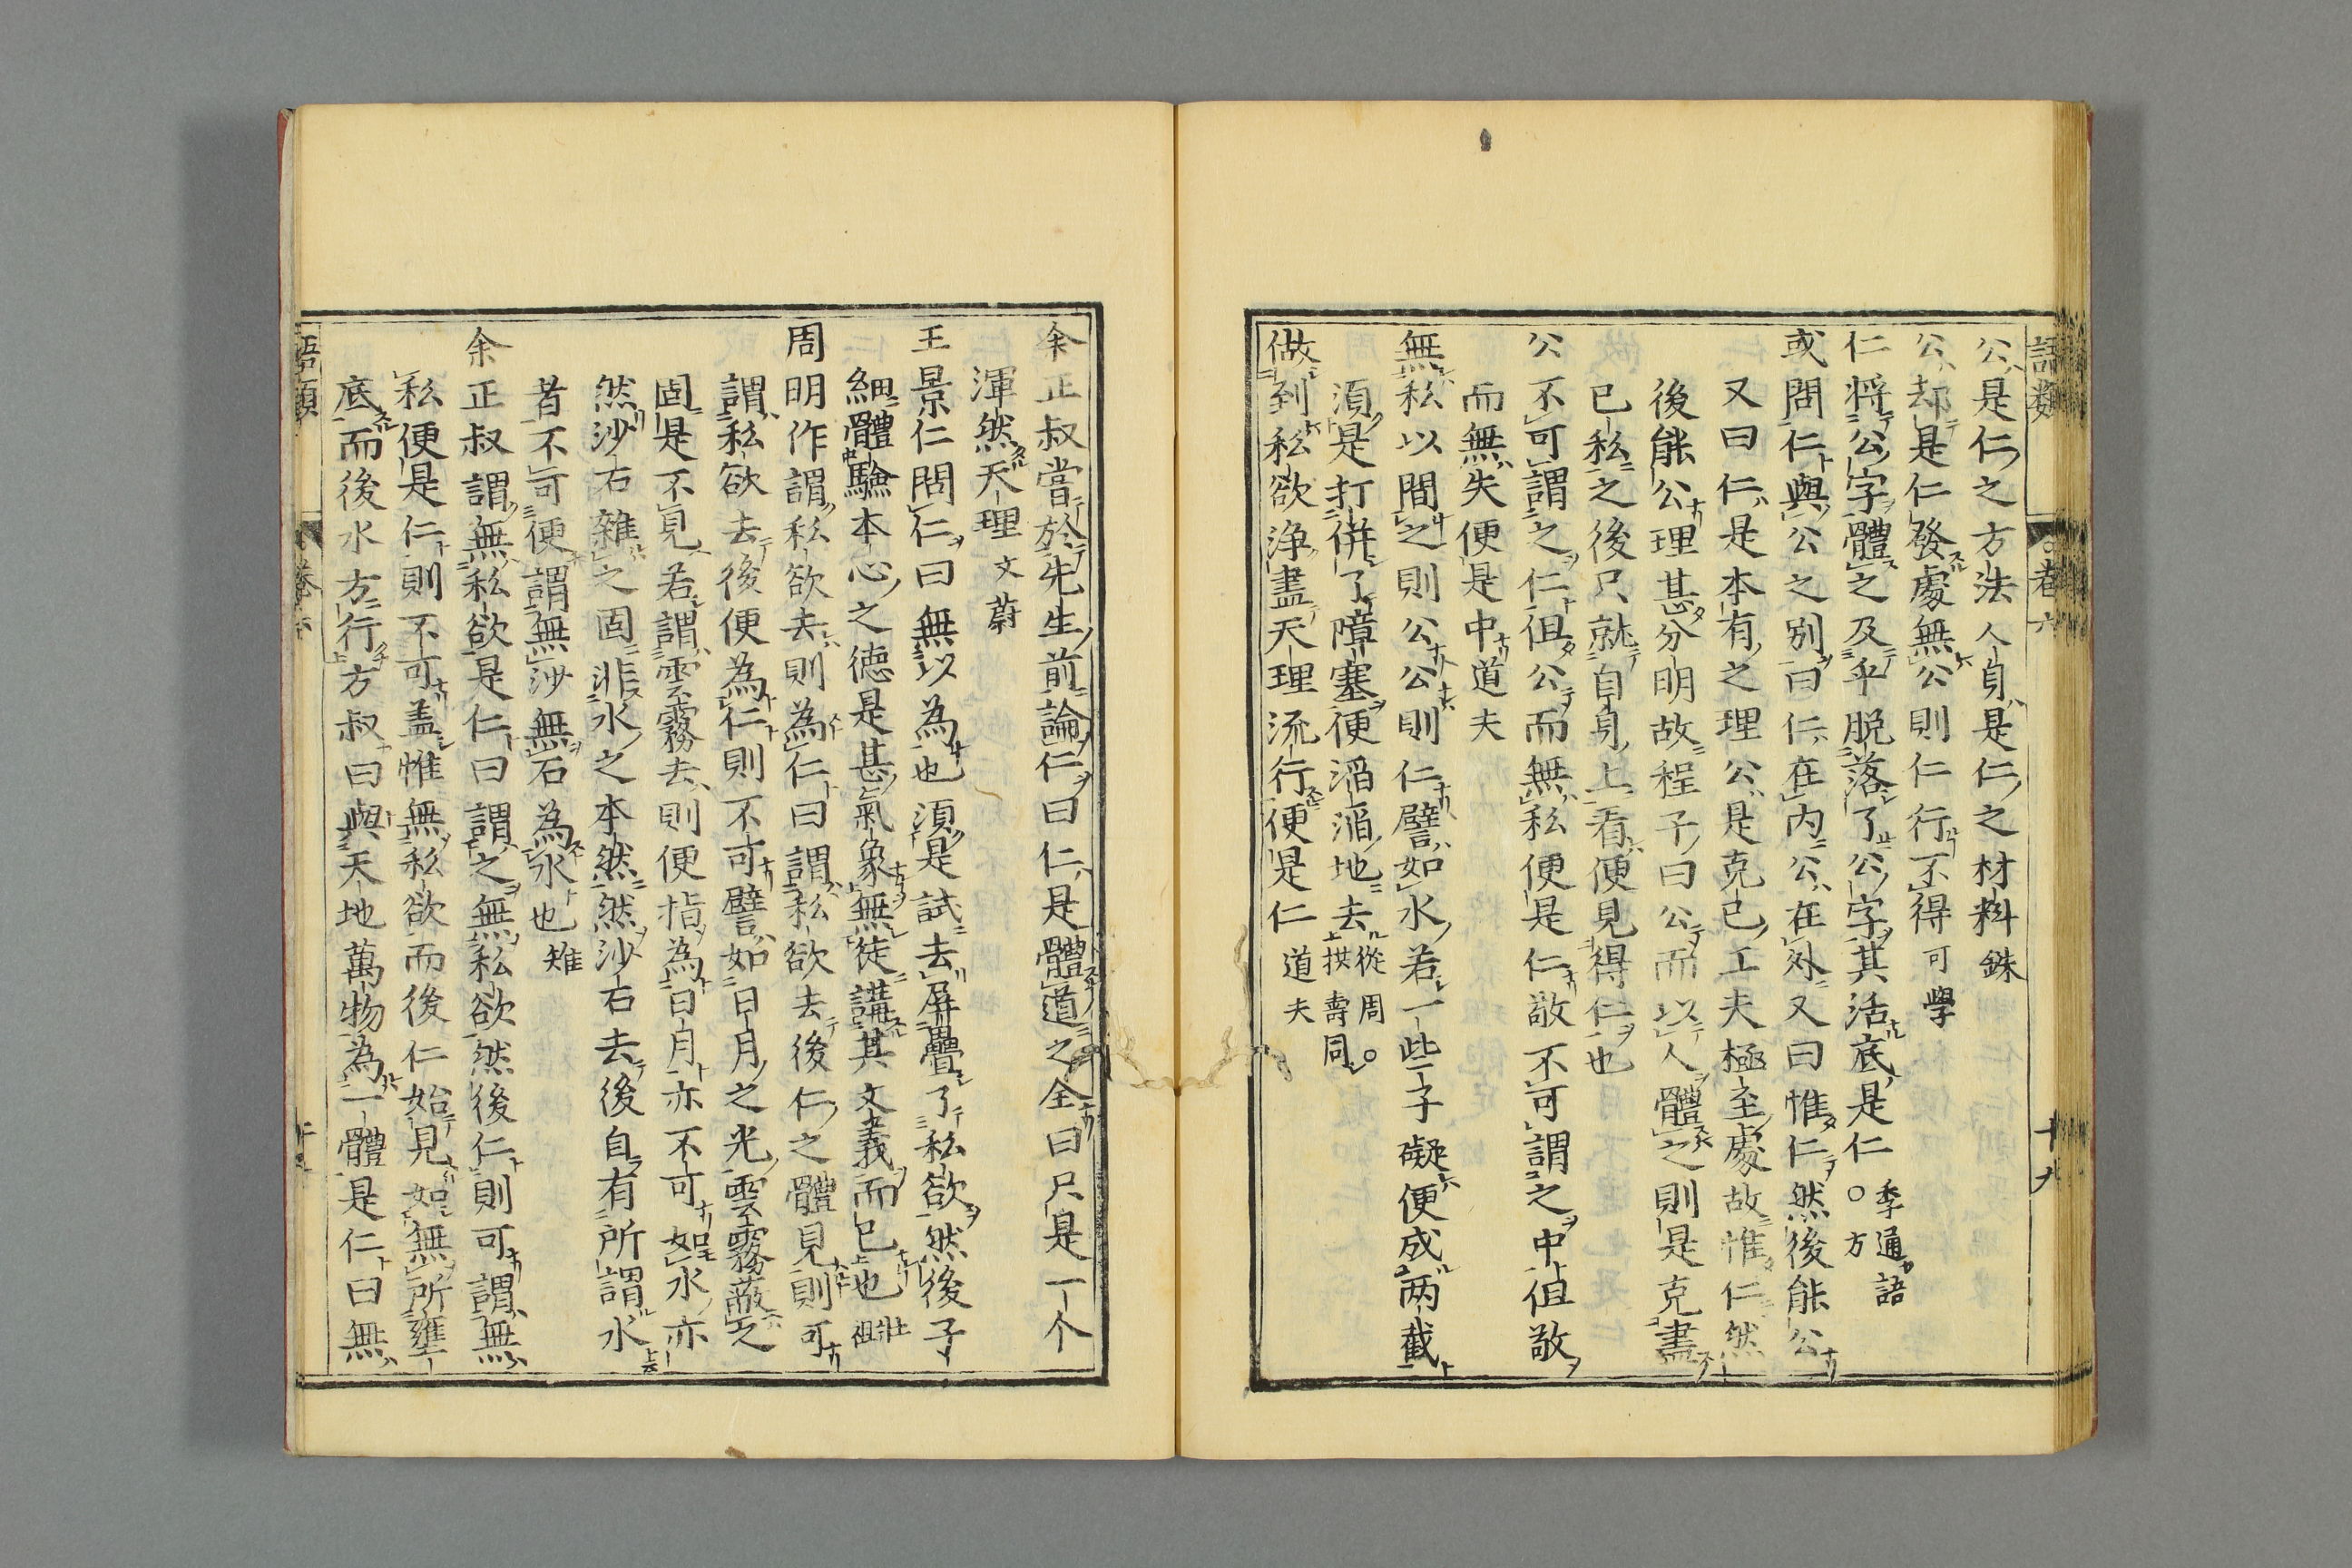 語類 卷六 十九
公是仁之方法人身是仁之材料銖
公却是仁發處無公則仁行不得可學
仁將公字體之及乎脱落了公字其活底是仁〇季通語方
或問仁與公之别曰仁在内公在外又曰惟仁然後能公
又曰仁是本有之理公是克已工夫極至處故惟仁然
後能公理甚分明故程子曰公而以人體之則是克盡
已私之後只就自身上看便見得仁也
公不可謂之仁但公而無私便是仁敬不可謂之中但敬
而無失便是中道夫
無私以間之則公公則仁譬如水若一些子礙便成两截
須是打併了障塞便滔滔地去從周〇拱壽同
做到私欲浄盡天理流行便是仁道夫
余正叔嘗於先生前論仁曰仁是體道之全曰只是一个
渾然天理文蔚
王景仁問仁曰無以為也須是試去屏疊了私欲然後子
細體驗本心之德是甚氣象無徒講其文義而已也壯祖
周明作謂私欲去則為仁曰謂私欲去後仁之體見則可
謂私欲去後便為仁則不可譬如日月之光雲霧蔽之
固是不見若謂雲霧去則便指為日月亦不可如水亦
然沙石雜之固非水之本然然沙石去後自有所謂水
者不可便謂無沙無石為水也雉
余正叔謂無私欲是仁曰謂之無私欲然後仁則可謂無
私便是仁則不可盖惟無私欲而後仁始見如無所壅
底而後水方行方叔曰與天地萬物為一體是仁曰無
語類